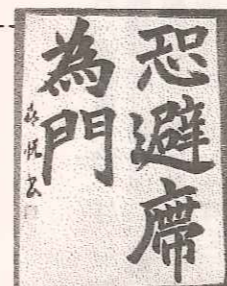 恐避席
為門